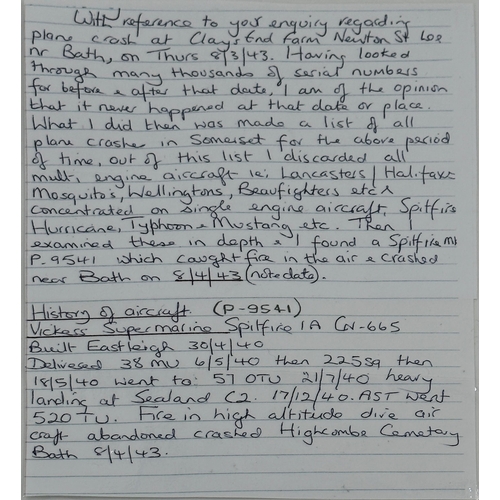 With reference to your enquiry regarding
plane crash at Clays End Farm Newton St Loe
nr Bath, on Thurs 8/3/43. Having looked
through many thousands of serial numbers
for before & after that date, I am of the opinion
that it never happened at that date or place.
What I did then was made a list of all
plane crashes in Somerset for the above period
of time, out of this list I discarded all
multi engine aircraft ie; Lancasters, Halifax
Mosquito's, Wellingtons, Beaufighters etc &
concentrated on single engine aircraft, Spitfirs
Hurricane, Typhoon & Mustang etc. Then
examined these in depth & I found a Spitfire M1
P.9541 which caught fire in the air & crashed
near Bath on 8/4/43 (note date).
History of aircraft. (P-9541)
Vickers Supermarine Spitfire 1A CN-665
Built Eastleigh 30/4/40
Delivered 38 MU 6/5/40 then 225sq then
18/5/40 went to: 57 OTU 21/7/40 heavy
landing at Sealand C2. 17/12/40. AST went
52OTU. Fire in high altitude dive air
craft abandoned crashed Highcombe Cemetary
Bath 8/4/43.